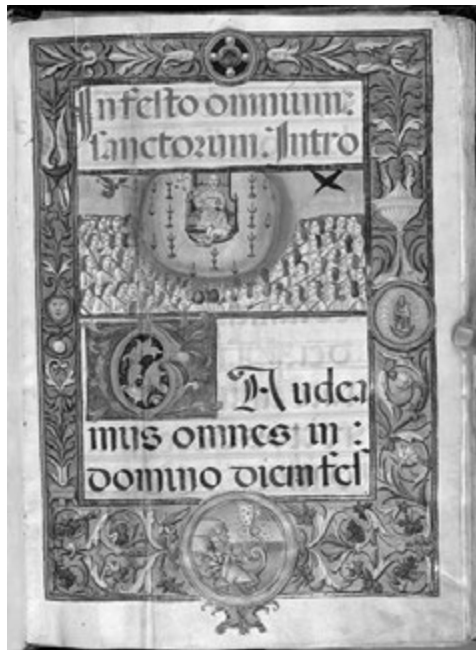 In festo omnium:
sanctorum: Intro
GAudea
mus omnes in :
domino diem fes